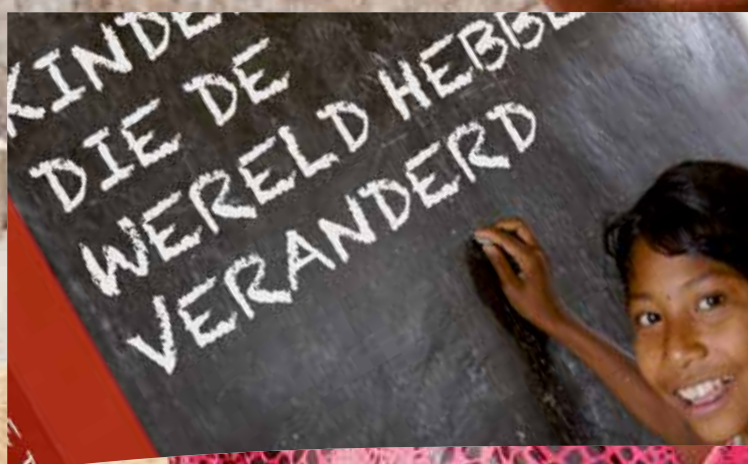 KINDE
DIE DE
WERELD HEBBE
VERANDERD